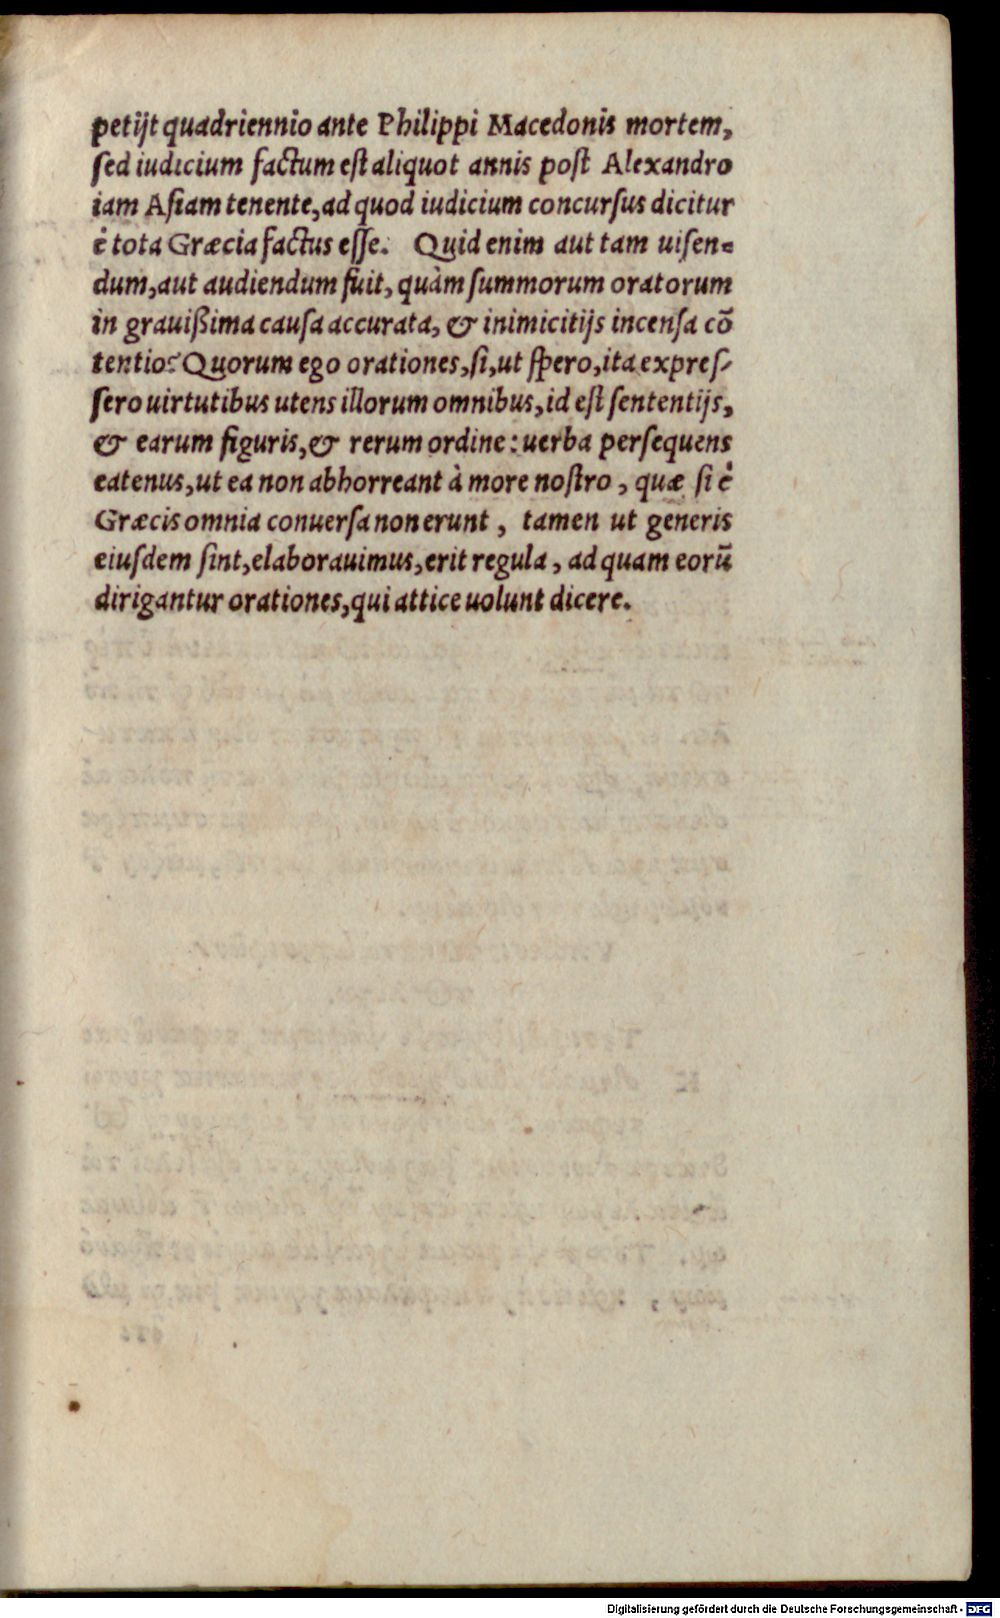 petijt quadriennio ante Philippi Macedonis mortem,
sed iudicium factum est aliquot annis post Alexandro
iam Asiam tenente, ad quod iudicium concursus dicitur
è tota Græcia factus esse. Quid enim aut tam uisen=
dum, aut audiendum fuit, quàm summorum oratorum
in grauißima causa accurata, & inimicitijs incensa cō
tentio? Quorum ego orationes, si, ut spero, ita expres/
sero uirtutibus utens illorum omnibus, id est sententijs,
& earum figuris, & rerum ordine: uerba persequens
eatenus, ut ea non abhorreant à more nostro, quæ si è
Græcis omnia conuersa non erunt, tamen ut generis
eiusdem sint, elaborauimus, erit regula, ad quam eorū
dirigantur orationes, qui attice uolunt dicere.
Digitalisierung gefördert durch die Deutsche Forschungsgemeinschaft - DFG